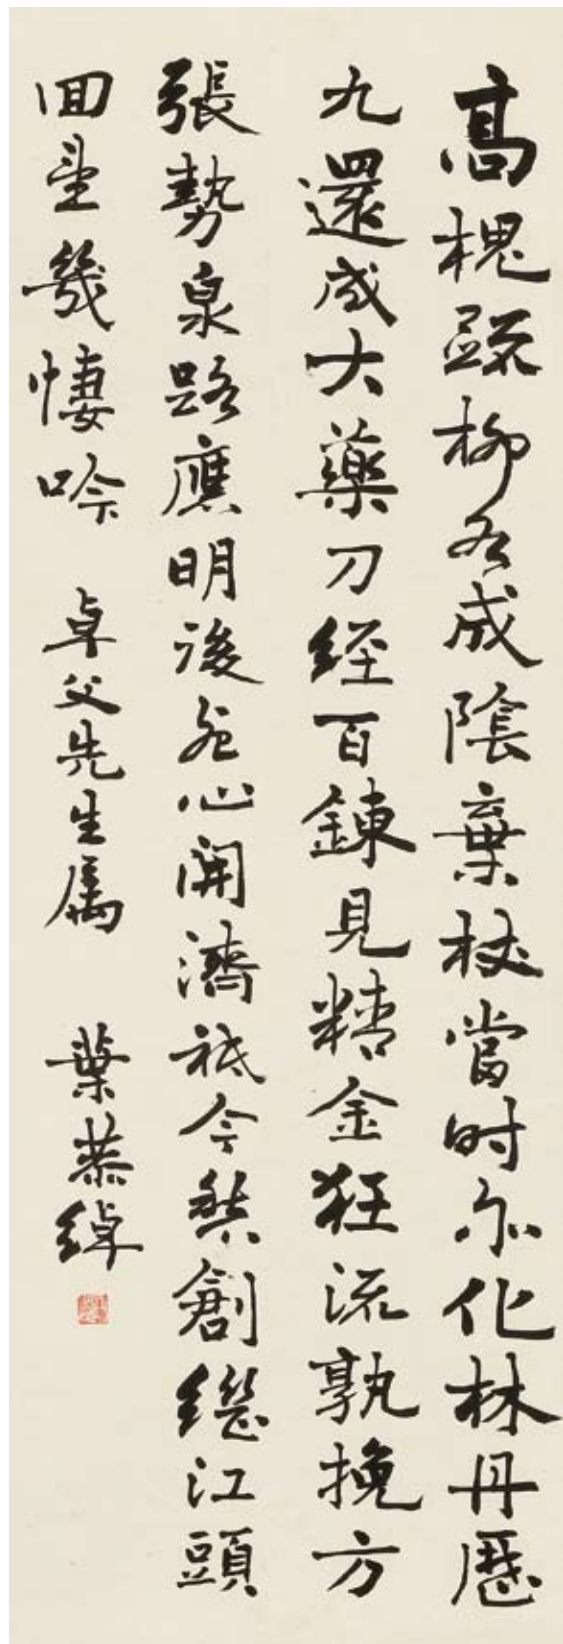 高槐疏柳各成陰棄杖當时亦化林丹歷
九還成大藥刀經百鍊見精金狂流孰挽方
張勢泉路應明後死心開濟祗今創繼江頭
回望幾悽吟 卓父先生属 葉恭綽